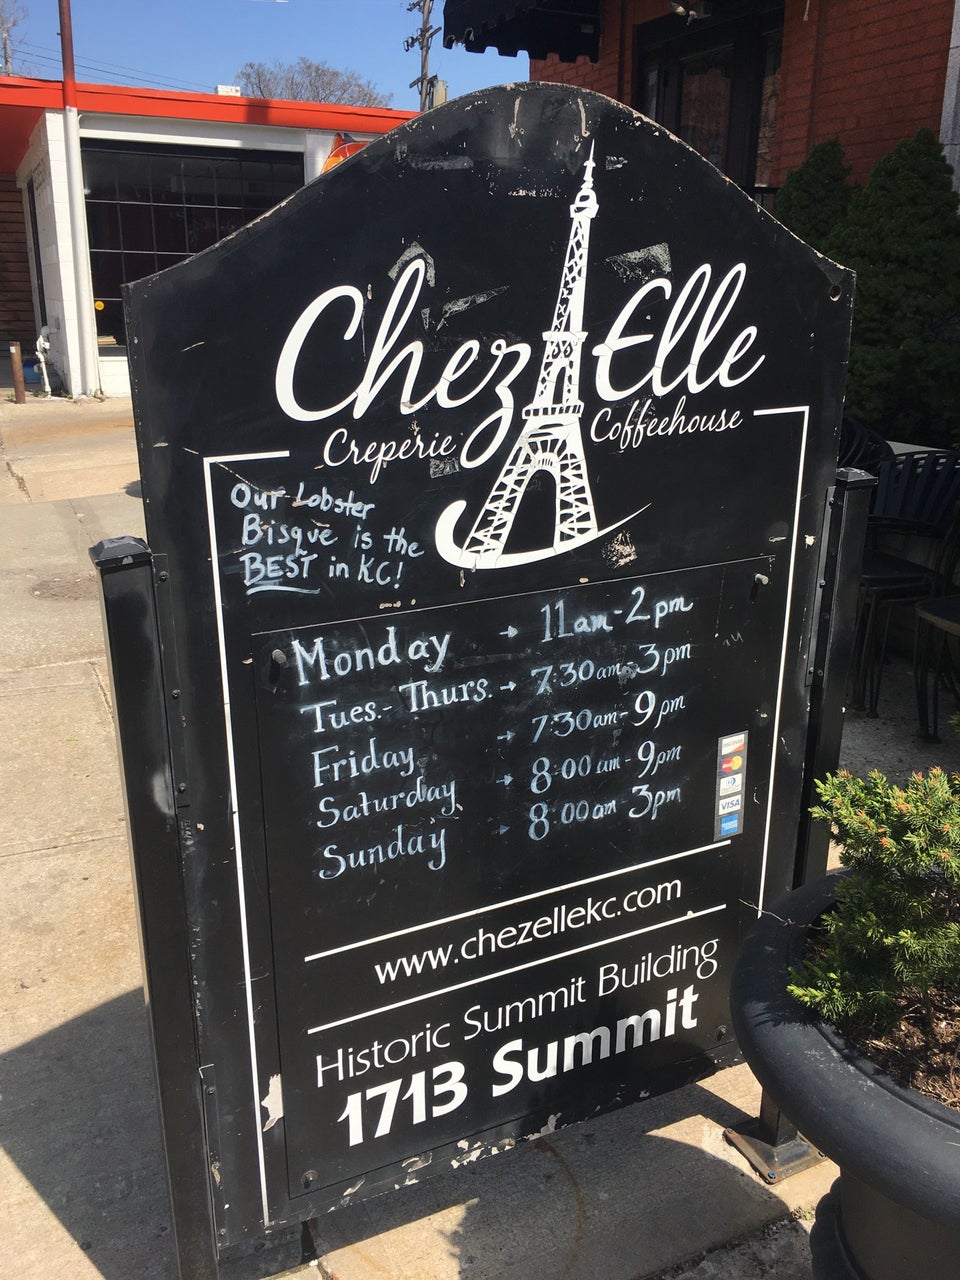 Chez Elle
Creperie Coffeehouse
Our Lobster
Bisque is the
BEST in KC!
Monday → 11am-2pm
Tues.- Thurs. → 7:30am-3pm
Friday → 7:30am-9pm
Saturday → 8:00am-9pm
Sunday → 8:00am-3pm
DISCOVER
VISA
www.chezellekc.com
Historic Summit Building
1713 Summit